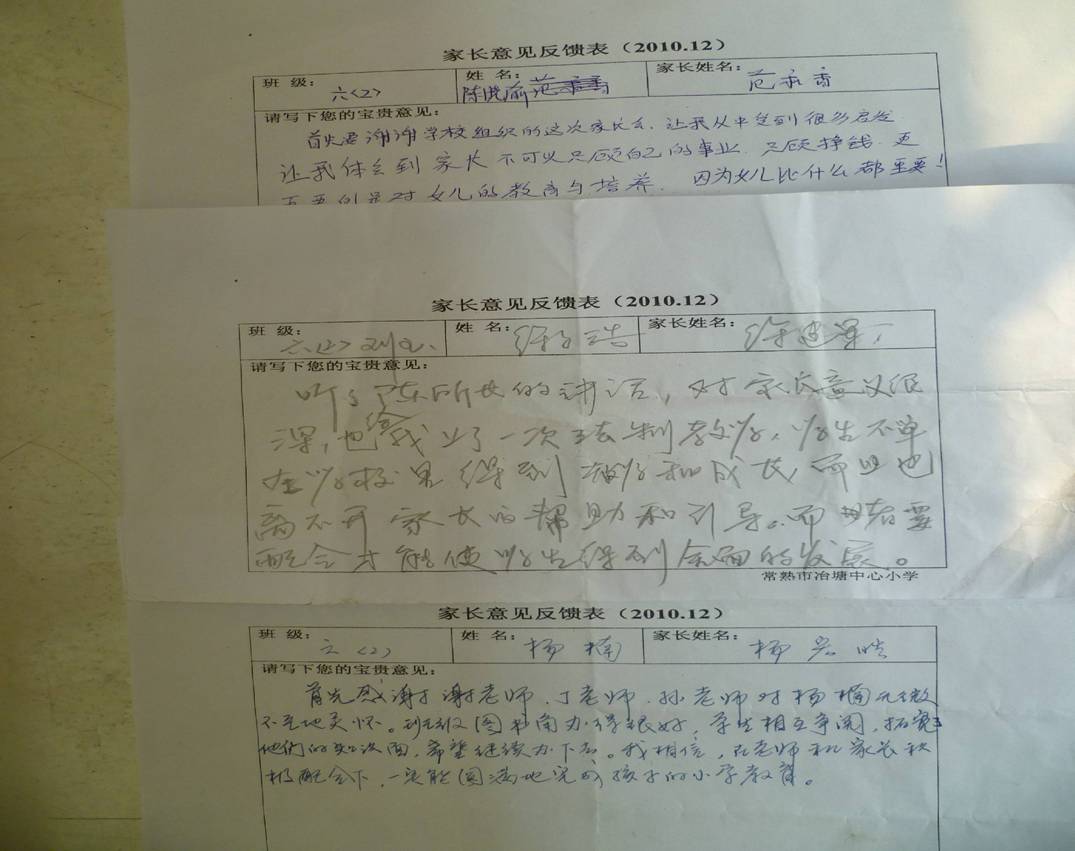 家长意见反馈表（2010.12）
班 级： 六<2> 姓 名： 陈 前 家长姓名： 范 香
请写下您的宝贵意见：
首先要谢谢学校组织的这次家长会，让我从中受到很多启发
让我体会到家长不可以只顾自己的事业，只顾挣钱，更
重要的是对女儿的教育与培养，因为女儿比什么都重要！
家长意见反馈表（2010.12）
班 级： 六(2) 姓 名： 徐 浩 家长姓名： 徐建
请写下您的宝贵意见：
听了陈所长的讲话，对家长意义很
深，也给我上了一次法制教学，学生不单
在学校里得到教学和成长，而且也
离不开家长的帮助和引导。而 需
配合才能使学生得到全面的发展。
常熟市冶塘中心小学
家长意见反馈表（2010.12）
班 级： 六(2) 姓 名： 杨楠 家长姓名： 杨宏皓
请写下您的宝贵意见：
首先感谢谢老师、丁老师、孙老师对杨楠无微
不至地关怀。班级图书角办得很好，学生相互争阅，拓宽
他们的知识面，希望继续办下去。我相信，在老师和家长积
极配合下，一定能圆满地完成孩子的小学教育。